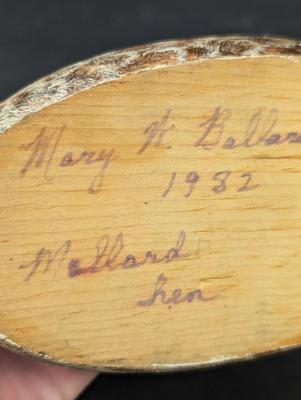 Mary W. Ballard
1982
Mallard
hen